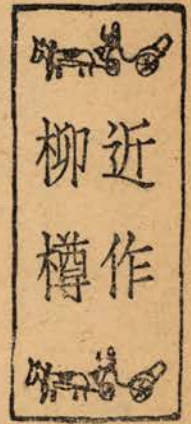 近作
柳樽